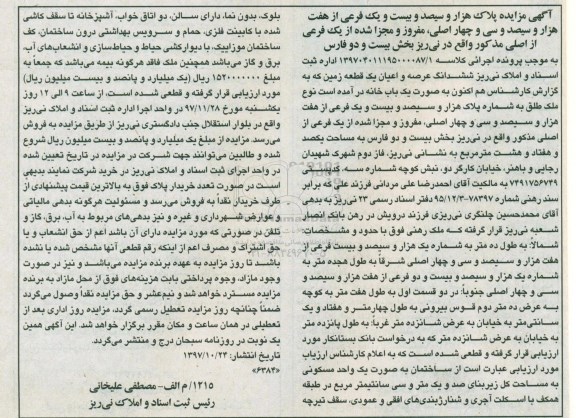 آگهی مزایده پلاک هزار و سیصد و بیست و یک فرعی از هفت
هزار و سیصد و سی و چهار اصلی، مفروز و مجزا شده از یک فرعی
از اصلی مذکور واقع در نی‌ریز بخش بیست و دو فارس
به موجب پرونده اجرائی کلاسه ۱۳۹۷۰۴۰۱۱۱۹۵۰۰۰۰۸۷/۱ اداره ثبت
اسناد و املاک نی‌ریز ششدانگ عرصه و اعیان یک قطعه زمین که به
گزارش کارشناس هم اکنون به صورت یک باب خانه در آمده است نوع
ملک طلق به شماره پلاک هزار و سیصد و بیست و یک فرعی از هفت
هزار و سیصد و سی و چهار اصلی، مفروز و مجزا شده از یک فرعی از
اصلی مذکور واقع در نی‌ریز بخش بیست و دو فارس به مساحت یکصد
و هفتاد و هشت مترمربع به نشانی نی‌ریز، فاز دوم شهرک شهیدان
رجایی و باهنر، خیابان کارگر دو، نبش کوچه شماره سه، کدپستی
۷۴۹۱۷۵۶۷۴۹ به مالکیت آقای احمدرضا علی مردانی فرزند علی که برابر
سند رهنی شماره ۷۸۳۹۷-۹۵/۱۲/۳ دفتر اسناد رسمی ۲۳ نی‌ریز به بدهی
آقای محمدحسین چلنگری نی‌ریزی فرزند درویش در رهن بانک انصار
شعبه نی‌ریز قرار گرفته که ملک رهنی فوق با حدود و مشخصات:
شمالاً: به طول ده متر به شماره یک هزار و سیصد و بیست فرعی از
هفت هزار و سیصد و سی و چهار اصلی شرقاً به طول هجده متر به
شماره یک هزار و سیصد و بیست و دو فرعی از هفت هزار و سیصد و
سی و چهار اصلی جنوباً: در دو قسمت اول به طول هفت متر به کوچه
به عرض ده متر دوم قوس بیرونی به طول چهارمتر و هفتاد و یک
سانتی‌متر به خیابان به عرض شانزده متر غرباً: به طول پانزده متر
به خیابان به عرض شانزده متر که به درخواست بانک بستانکار مورد
ارزیابی قرار گرفته و قطعی شده است که به اعلام کارشناس ارزیاب
مورد ارزیابی عبارت است از ساختمان به صورت یک واحد مسکونی
به مساحت کل زیربنای صد و یک متر و سی سانتیمتر مربع در طبقه
همکف با اسکلت آجری و شناژبندی‌های افقی و عمودی، سقف تیرچه
بلوک، بدون نما، دارای سالن، دو اتاق خواب، آشپزخانه تا سقف کاشی
شده با کابینت فلزی، حمام و سرویس بهداشتی درون ساختمان، کف
ساختمان موزاییک، با دیوارکشی حیاط و حیاط‌سازی و انشعاب‌های آب،
برق و گاز می‌باشد همچنین ملک فاقد هرگونه بیمه می‌باشد که جمعاً به
۱۵۲۰۰۰۰۰۰۰ ریال (یک میلیارد و پانصد و بیست میلیون ریال)
مورد ارزیابی قرار گرفته و قطعی شده است، از ساعت ۹ الی ۱۲ روز
یکشنبه مورخ ۹۷/۱۱/۲۸ در واحد اجرا اداره ثبت اسناد و املاک نی‌ریز
واقع در بلوار استقلال جنب دادگستری نی‌ریز از طریق مزایده به فروش
می‌رسد. مزایده از مبلغ یک میلیارد و پانصد و بیست میلیون ریال شروع
شده و طالبین می‌توانند جهت شرکت در مزایده در تاریخ تعیین شده
در واحد اجرای ثبت اسناد و املاک نی‌ریز در خرید شرکت نمایند بدیهی
است در صورت تعدد خریدار پلاک فوق به بالاترین قیمت پیشنهادی از
طرف خریدار نقداً به فروش می‌رسد و مسئولیت هرگونه بدهی مالیاتی
و عوارض شهرداری و غیره و نیز بدهی‌های مربوط به آب، برق، گاز و
تلفن در صورتی که مورد مزایده دارای آن باشد اعم از حق انشعاب و یا
حق اشتراک و مصرف اعم از اینکه رقم قطعی آنها مشخص شده یا نشده
باشد تا روز مزایده به عهده برنده مزایده می‌باشد و نیز در صورت
وجود مازاد، وجوه پرداختی بابت هزینه‌های فوق از محل مازاد به برنده
مزایده مسترد خواهد شد و نیم‌عشر و حق مزایده نقداً وصول می‌گردد
ضمناً چنانچه روز مزایده تعطیل رسمی گردد، مزایده روز اداری بعد از
تعطیلی در همان ساعت و مکان مقرر برگزار خواهد شد. این آگهی همین
یک نوبت در روزنامه سبحان درج و منتشر می‌گردد.
تاریخ انتشار: ۱۳۹۷/۱۰/۲۴
«۶۳۸۴»
۱۲۱۵/م الف-مصطفی علیخانی
رئیس ثبت اسناد و املاک نی‌ریز